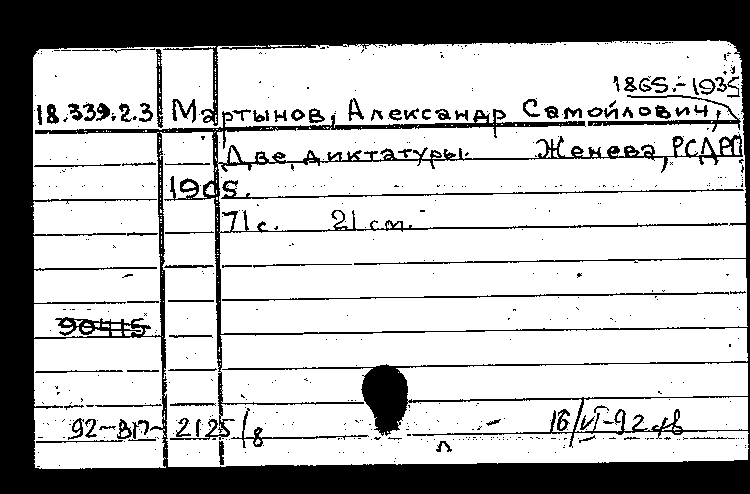 1865.-1935
18.339.2.3 Мартынов, Александр Самойлович,
Две диктатуры. Женева, РСДРП
1905.
71 с. 21 cm.
90415
92-ВП- 2125/8 16/VI-92